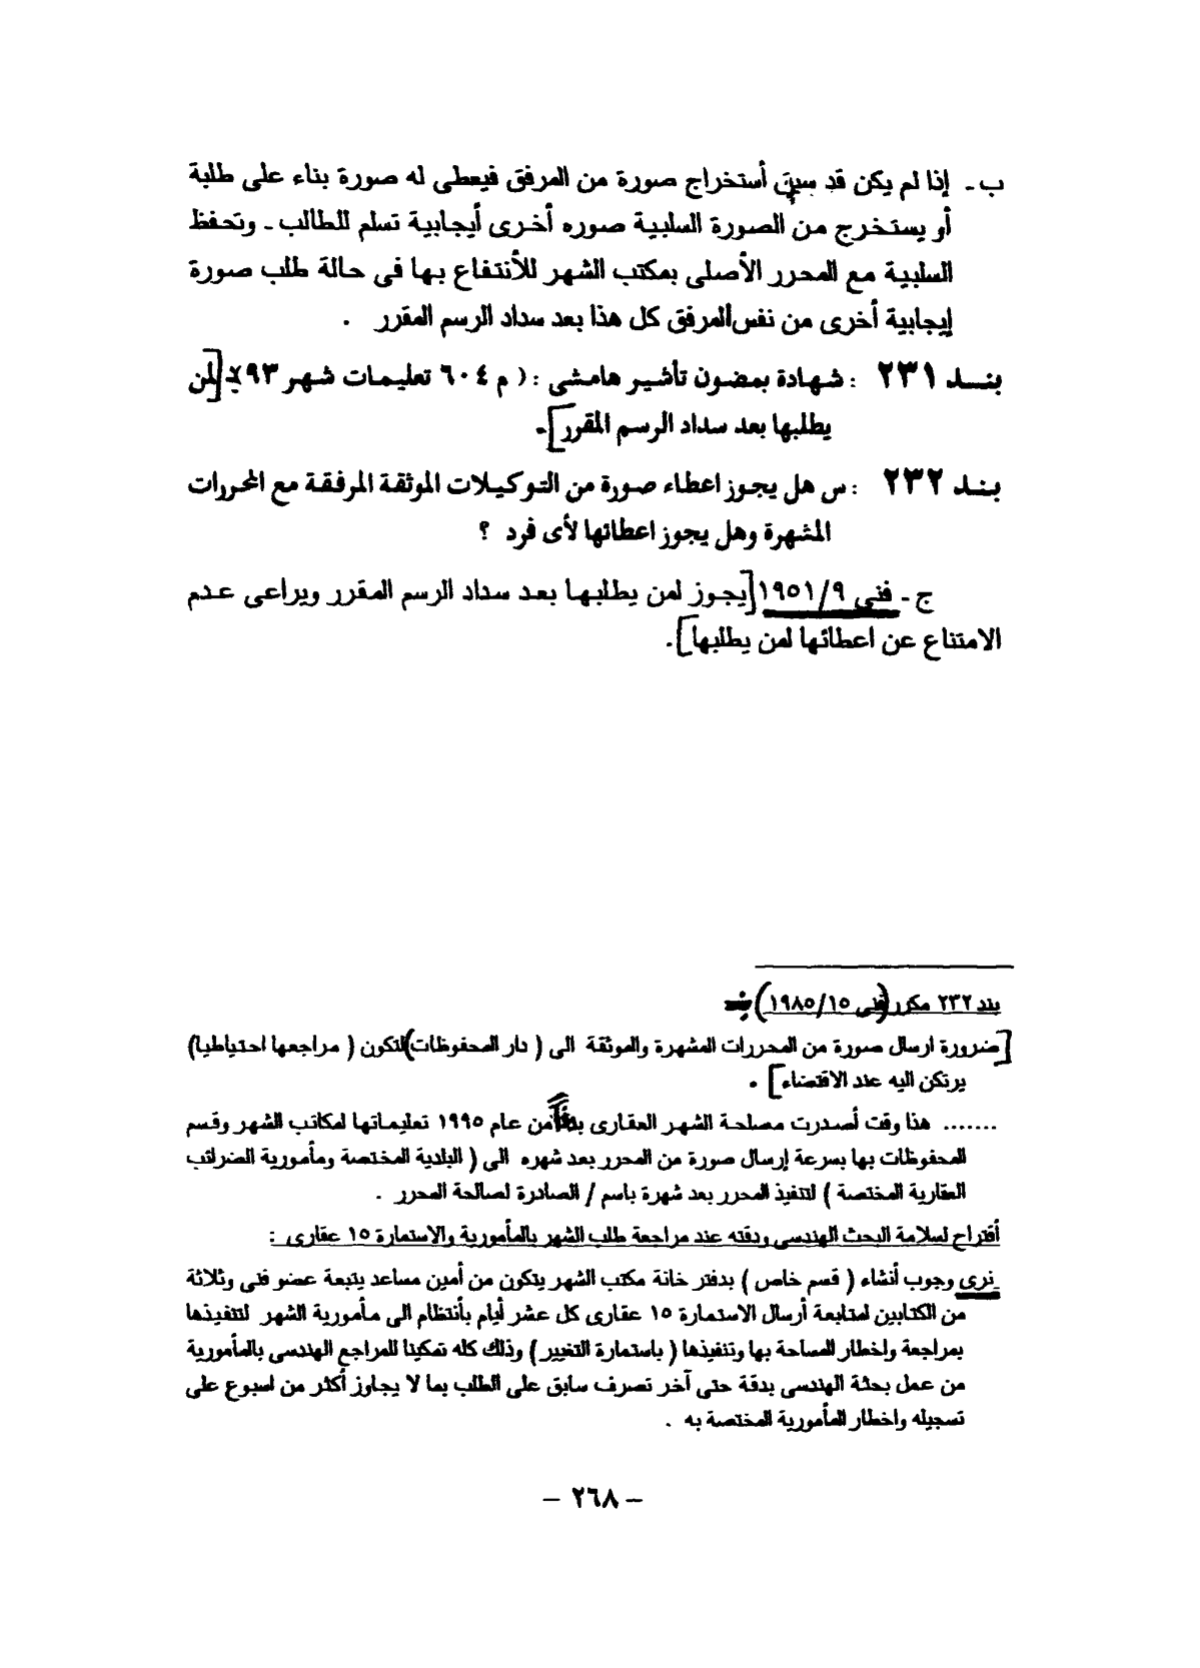 ب ـ إذا لم يكن قد سبق أستخراج صورة من المرفق فيعطى له صورة بناء على طلبة
أو يستخرج من الصورة السلبية صوره أخرى أيجابية تسلم للطالب ـ وتحفظ
السلبية مع المحرر الأصلى بمكتب الشهر للأنتفاع بها فى حالة طلب صورة
إيجابية أخرى من نفس المرفق كل هذا بعد سداد الرسم المقرر .
بنـد ٢٣١ : شهادة بمضون تأشير هامشى : ( م ٦٠٤ تعليمات شهر ٩٣ ) [ لمن
يطلبها بعد سداد الرسم المقرر ] ـ
بنـد ٢٣٢ : س هل يجوز اعطاء صورة من التوكيلات الموثقة المرفقة مع المحررات
المشهرة وهل يجوز اعطائها لأى فرد ؟
ج ـ فنى ١٩٥١/٩ [ يجوز لمن يطلبها بعد سداد الرسم المقرر ويراعى عدم
الامتناع عن اعطائها لمن يطلبها ] .
بند ٢٣٢ مكرر ( فنى ١٩٨٥/١٥ )
[ ضرورة ارسال صورة من المحررات المشهرة والموثقة الى ( دار المحفوظات ) لتكون ( مراجعها احتياطيا )
يرتكن اليه عند الاقتضاء ] .
....... هذا وقت أصدرت مصلحة الشهر العقارى من عام ١٩٩٥ تعليماتها لمكاتب الشهر وقسم
المحفوظات بها بسرعة إرسال صورة من المحرر بعد شهره الى ( البلدية المختصة ومأمورية الضرائب
العقارية المختصة ) لتنفيذ المحرر بعد شهرة باسم / الصادرة لصالحة المحرر .
أقتراح لسلامة البحث الهندسى ودقته عند مراجعة طلب الشهر بالمأمورية والاستمارة ١٥ عقارى :
نرى وجوب أنشاء ( قسم خاص ) بدفتر خانة مكتب الشهر يتكون من أمين مساعد يتبعة عضو فنى وثلاثة
من الكتابين لمتابعة أرسال الاستمارة ١٥ عقارى كل عشر أيام بأنتظام الى مأمورية الشهر لتنفيذها
بمراجعة واخطار المساحة بها وتنفيذها ( باستمارة التغيير ) وذلك كله تمكينا للمراجع الهندسى بالمأمورية
من عمل بحثة الهندسى بدقة حتى آخر تصرف سابق على الطلب بما لا يجاوز أكثر من اسبوع على
تسجيله واخطار المأمورية المختصة به .
– ٢٦٨ –